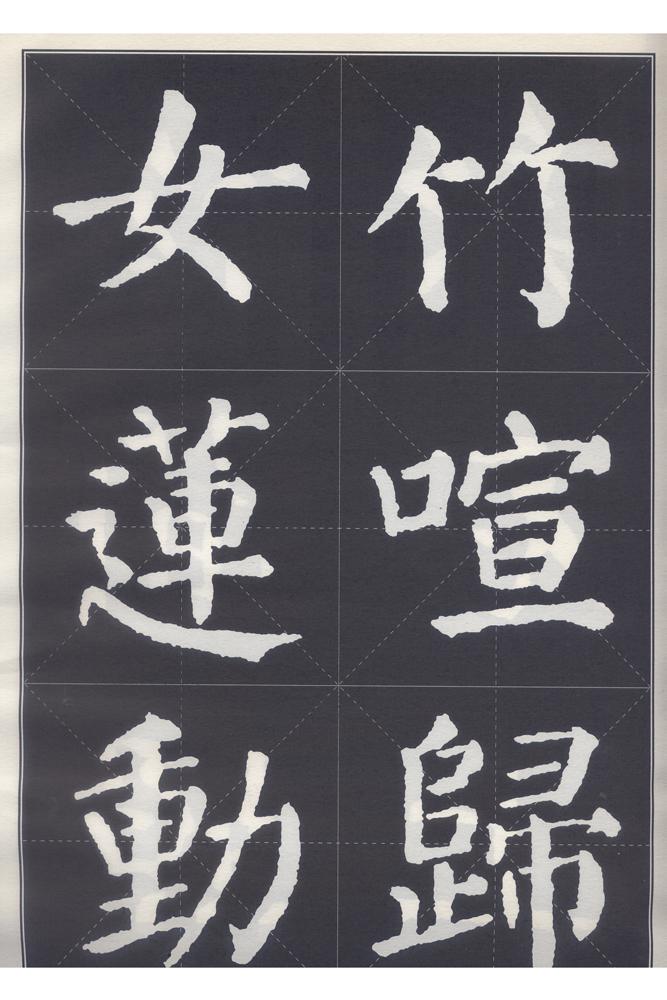 竹喧歸
女蓮動